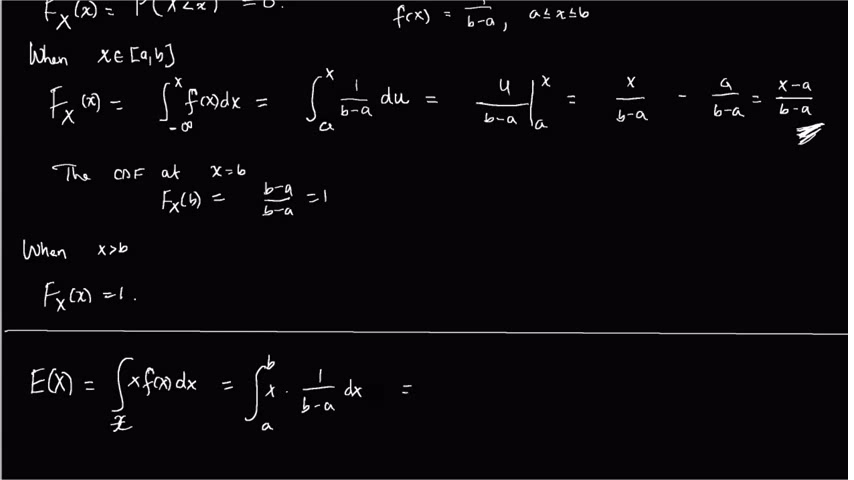 F_X(x) = P(X<x) = 0. f(x) = 1/(b-a), a≤x≤b
When x∈[a,b]
F_X(x) = ∫_{-∞}^{x} f(x)dx = ∫_a^x 1/(b-a) du = u/(b-a) |_a^x = x/(b-a) - a/(b-a) = (x-a)/(b-a)
The CDF at x=b
F_X(b) = (b-a)/(b-a) = 1
When x>b
F_X(x) = 1.
E(X) = ∫_x x f(x) dx = ∫_a^b x · 1/(b-a) dx =